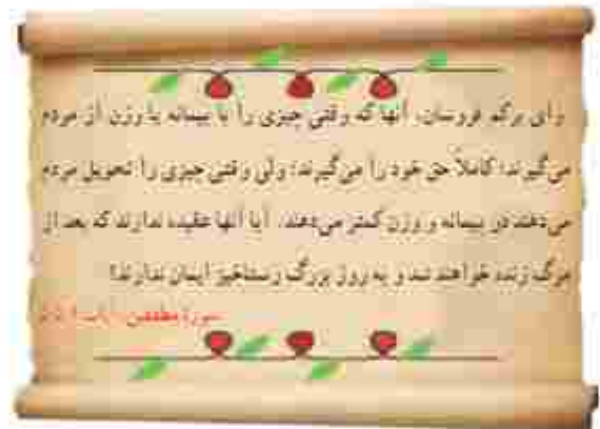 وای برکم فروشان، آنها که وقتی چیزی را با پیمانه یا وزن از مردم
می‌گیرند؛ کاملاً حق خود را می‌گیرند؛ ولی وقتی چیزی را تحویل مردم
می‌دهند در پیمانه و وزن کمتر می‌دهند. آیا آنها عقیده ندارند که بعد از
مرگ زنده خواهند شد و به روز بزرگ رستاخیز ایمان ندارند؟
سورهٔ مطففین، آیات